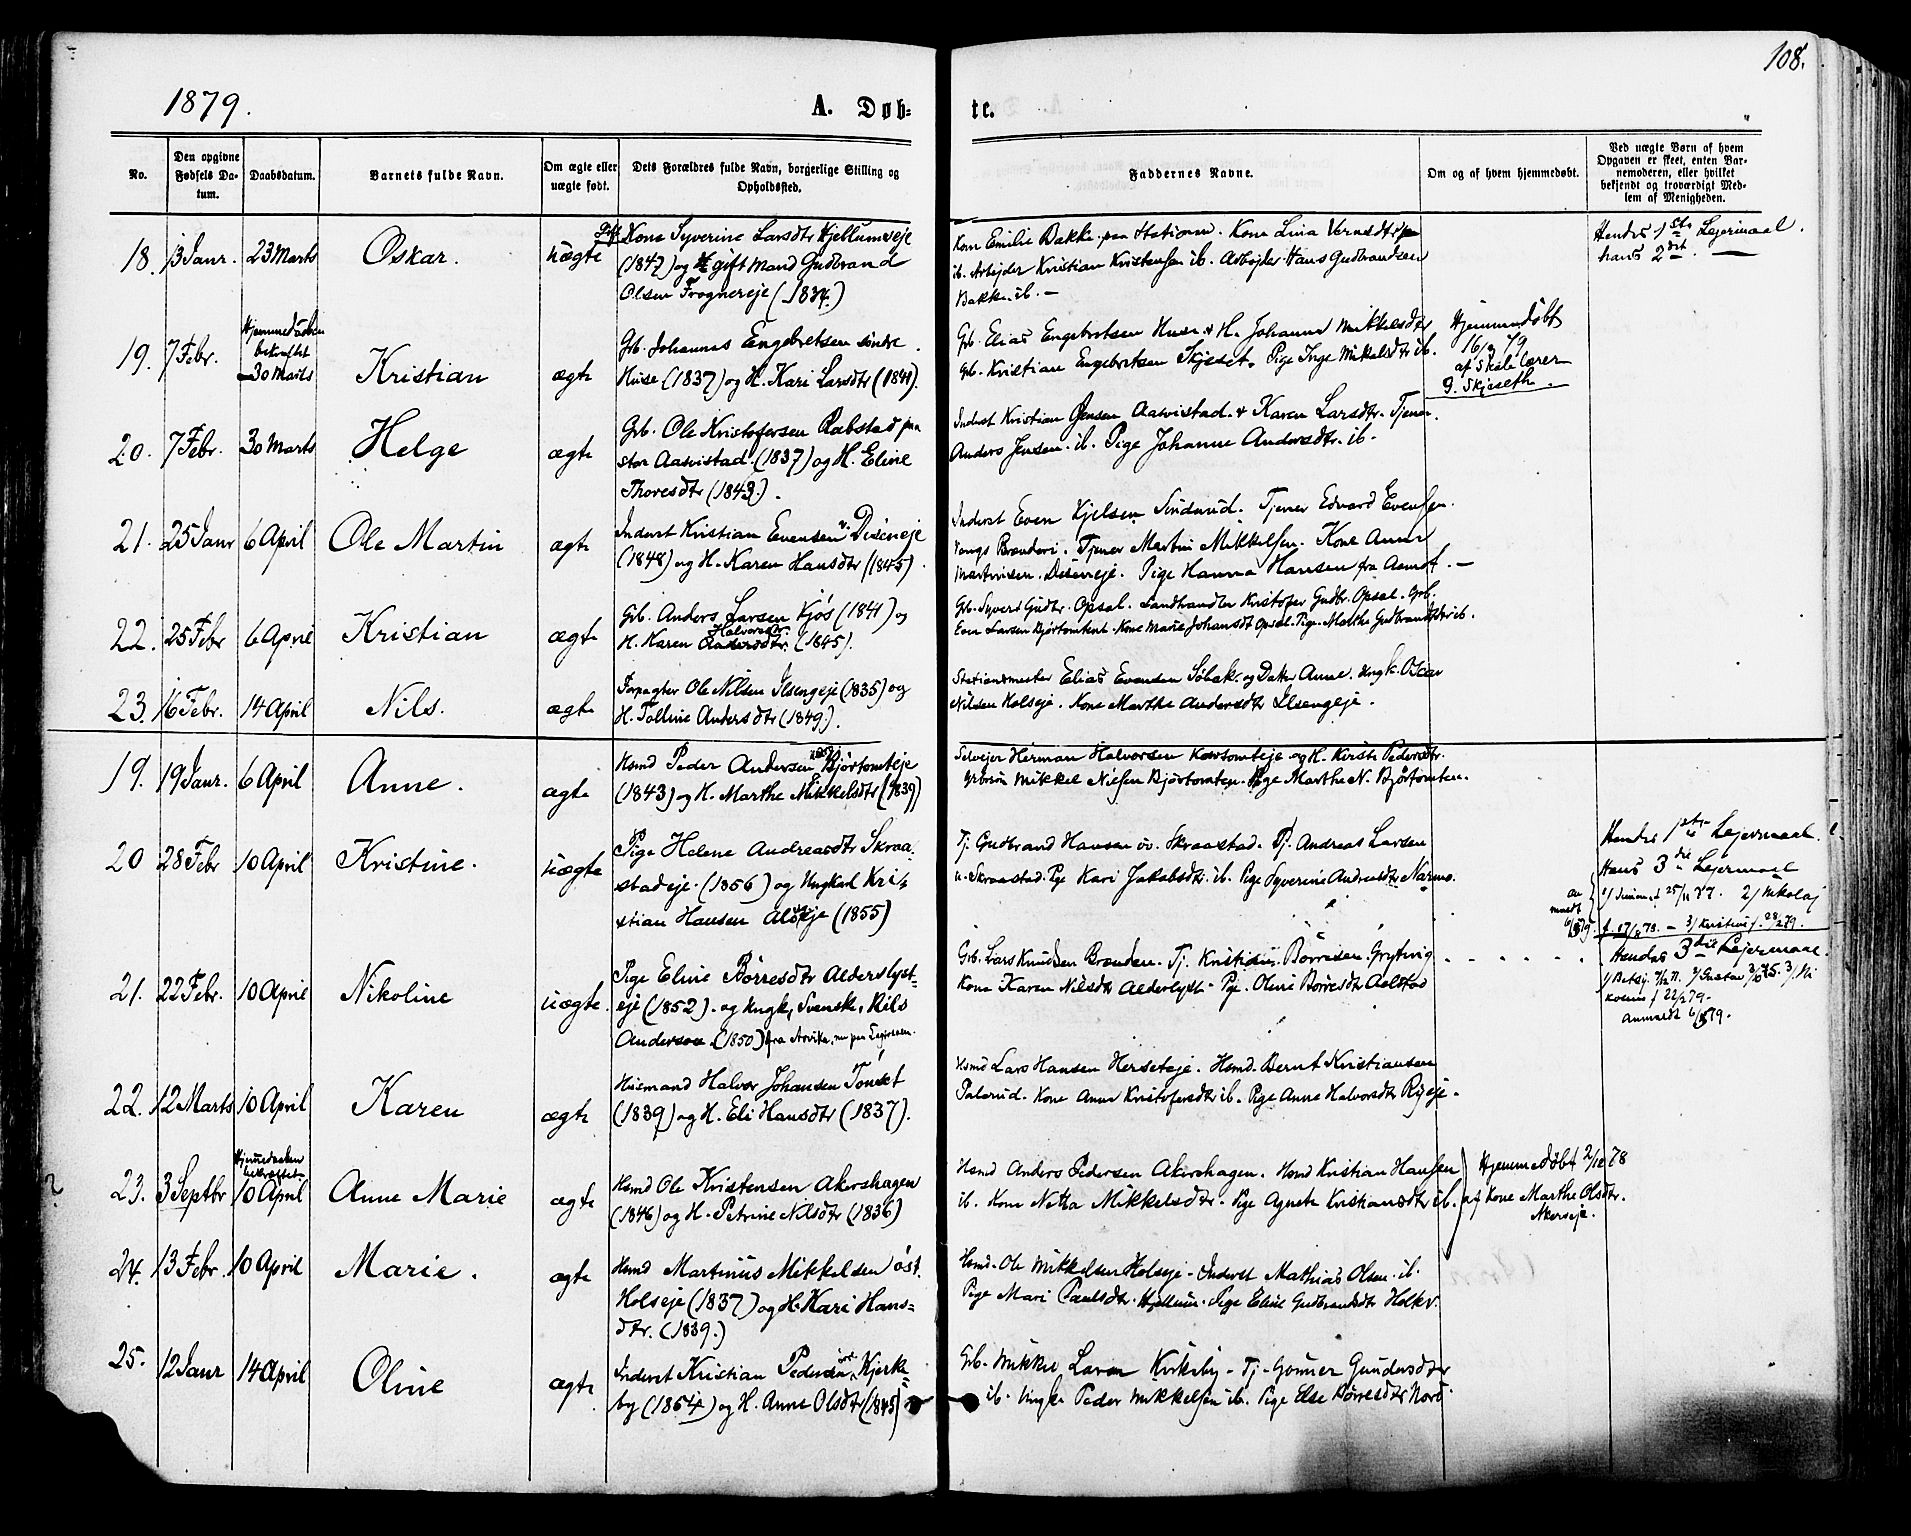 108.
1879.
A. Døb=
te.
No.
Den opgivne Fødsels Da-tum.
Daabsdatum.
Barnets fulde Navn.
Om ægte eller uægte født.
Dets Forældres fulde Navn, borgerlige Stilling og Opholdssted.
Faddernes Navne.
Om og af hvem hjemmedøbt.
Ved uægte Børn af hvem Opgaven er skeet, enten Bar-nemoderen, eller hvilket bekjendt og troværdigt Med-lem af Menigheden.
18. 13 Janr. 23 Marts Oskar. uægte
Kone Syverine Larsdtr Hjellumseje
(1847) og gift Mand Gudbrand
Olsen Frognereje (1834.)
Kone Emilie Bakke paa Stationen. Kone Lina
ib. Arbejder Kristian Kristensen ib. Arbejder Hans Gudbrandsen
Bakke ib. —
Hendes 1ste Lejermaal.
hans 2det. —
19. 7 Febr. Hjemmedaaben
bekræftet
30 Marts Kristian ægte
Grb. Johannes Engebretsen søndre
Huse (1837) og H. Kari Larsdtr (1841).
Grb. Elias Engebretsen Huse & H. Johanne Mikkelsdtr
Grb. Kristian Engebretsen Skjeset. Pige Inge Mikkelsdtr ib.
Hjemmedøbt
16/2 79
af Skolelærer
Skjeseth.
20. 7 Febr. 30 Marts Helge ægte
Grb. Ole Kristofersen Rabstad paa
stor Aasvistad (1837) og H. Eline
Thoresdtr (1843.).
Inderst Kristian Jensen Aasvistad & Karen Larsdtr. Tjener
Anders Jensen ib. Pige Johanne Andersdtr. ib.
21. 25 Janr 6 April Ole Martin ægte
Inderst Kristian Evensen v. Diseneje
(1848) og H. Karen Hansdtr (1845).
Inderst Even Kjelsen Tjener Edvard Evensen
Vangs Brænderi. Tjener Martin Mikkelsen. Kone Anne
Martinsen. Diseneje. Pige Hanna Hansen fra Aamot. —
22. 25 Febr 6 April Kristian ægte
Grb. Anders Larsen Kjøs (1841) og
Halvorsdtr.
H. Karen Andersdtr. (1845).
Grb. Syver Gudbr. Opsal. Landhandler Kristofer Gudbr. Opsal. Grb.
Even Larsen Bjørtomten. Kone Marie Johansdt Opsal. Pige Marthe Gudbrandsdtr ib.
23. 16 Febr. 14 April Nils. ægte
Forpagter Ole Nilsen Ilsengeje (1835) og
H. Tolline Andersdtr (1849.).
Stationsmester Elias Evensen Søbak. og Datter Anne. Ungk. Oskar
Nilsen Holseje. Kone Marthe Andersdtr Ilsengeje.
19. 19 Janr. 6 April Anne. ægte
Hsmd Peder Andersen Bjørtomteje
(1843) og H. Marthe Mikkelsdtr (1839)
Selvejer Herman Halvorsen Kortomteje og H. Kirsti Pedersdtr.
Mikkel Nielsen Bjørtomten. Pige Marthe N. Bjørtomten.
20 28 Febr 10 April Kristine. uægte
Pige Helene Andreasdtr Skraa-
stadeje. (1856) og Ungkarl Kri-
stian Hansen (1855)
Tj. Gudbrand Hansen øv. Skraastad. Tj. Andreas Larsen
n. Skraastad. Pge Kari Jakobsdtr. ib. Pige Syverine Andreasdtr
Hendes 1ste Lejermaal.
Hans 3die Lejermaal
2/ Nikolaj
3/ Kristine f. 28/2 79.
21. 22 Febr. 10 April Nikoline uægte.
Pige Eline Børresdtr Alderslyst-
eje (1852). og Ungk, Svenske, Nils
Anderson (1850) fra Arvika, nu paa
Grb. Lars Knudsen Brænden. Tj. Kristian Børresen. Gryting
Kone Karen Nilsdtr Alderlyst. Pge. Oline Børresdtr Aalstad
Hendes 3die Lejermaal.
22/2 79.
Anmeldt
22. 12 Marts 10 April Karen ægte
Husmand Halvor Johansen Tomset
(1839) og H. Eli Hansdtr (1837).
Hsmd Lars Hansen Herseteje. Hsmd. Bernt Kristiansen
Palerud. Kone Anne Kristofersdtr ib. Pige Anne Halvorsdtr
23. 3 Septbr Hjemmedaaben
bekræftet
10 April Anne Marie ægte
Hsmd Ole Kristensen Akershagen
(1846) og H. Petrine Nilsdtr (1836)
Hsmd Anders Pedersen Akershagen. Hsmd Kristian Hansen
ib. Kone Netta Mikkelsdtr. Pige Agnete Kristiansdtr ib.
Hjemmedøbt 2/10 78
af Kone Marthe Olsdtr.
Akerseje.
24. 13 Febr 10 April Marie. ægte
Hsmd Martinus Mikkelsen øst.
Holseje (1837) og H. Kari Hans-
dtr. (1839.)
Hsmd. Ole Mikkelsen Holseje. Inderst Mathias Olsen. ib.
Pige Mari Paulsdtr. Hjellum. Pige Eline Gudbrandsdtr
25. 12 Janr 14 April Oline ægte
Inderst Kristian Pedersen Kjerke-
by (1854) og H. Anne Olsdtr (1845)
Grb. Mikkel Larsen Kirkeby. Tj. Gunner Gundersdtr
ib. Ungk. Peder Mikkelsen ib. Pige Else Børresdtr